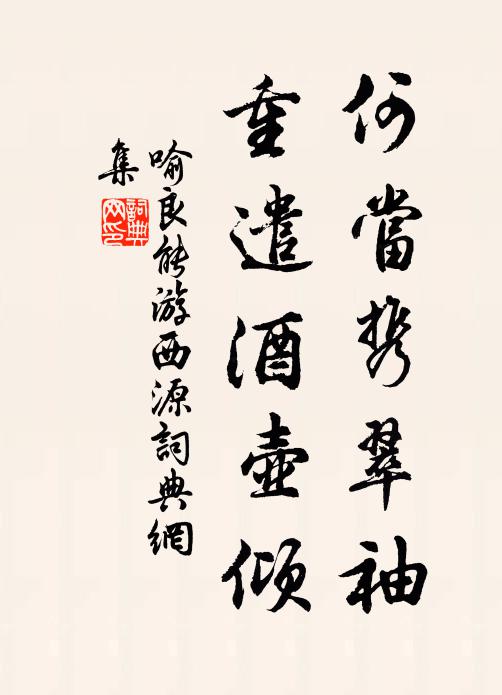 何當携翠袖
重遣酒壺傾
喻良能游西源詞典網
集
詞典
网印